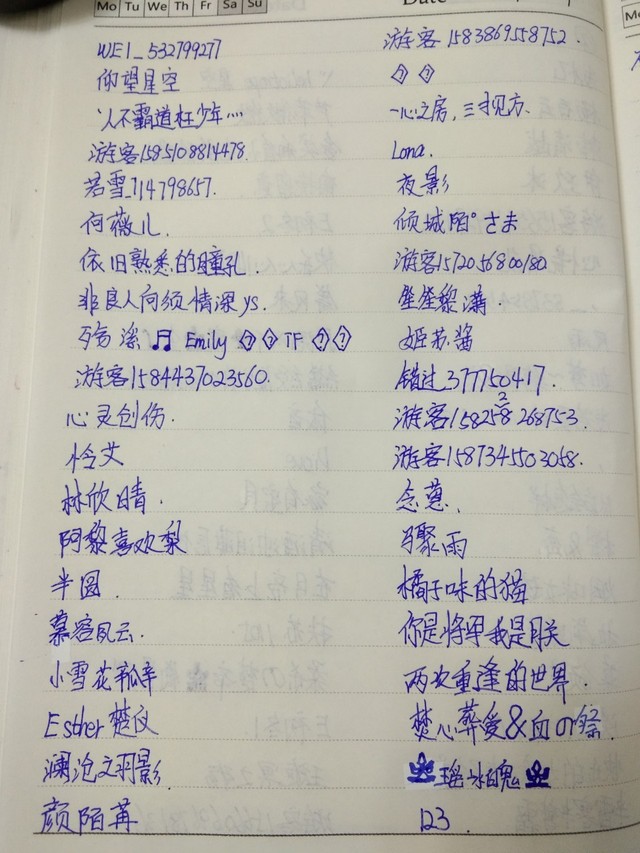 Mo Tu We Th Fr Sa Su
Date
WEI_532799277
仰望星空
人不霸道枉少年
游客1585108814478.
若雪_714798657.
何薇儿.
依旧熟悉的瞳孔.
非良人何须情深ys.
殇 深 🎵 Emily ◇? ◇? TF ◇? ◇?
游客1584437023560.
心灵创伤.
怜艾
林欣晴.
阿黎喜欢梨
半圆.
慕容风云.
小雪花瓢
Esther 楚仪
澜沧之羽影.
颜陌苒
游客1583869558752.
◇? ◇?
一心之房,三寸见方.
Lona.
夜影
倾城陌°さま
游客1572056800180.
坐坐黎潇.
姬苏酱
错过_377750417.
游客1582528268753.
游客1587345503058.
念蒽.
骤雨
橘子味的猫
你是将军我是月关
两次重逢的世界.
焚心葬爱&血の祭.
瑶冰魄
123.